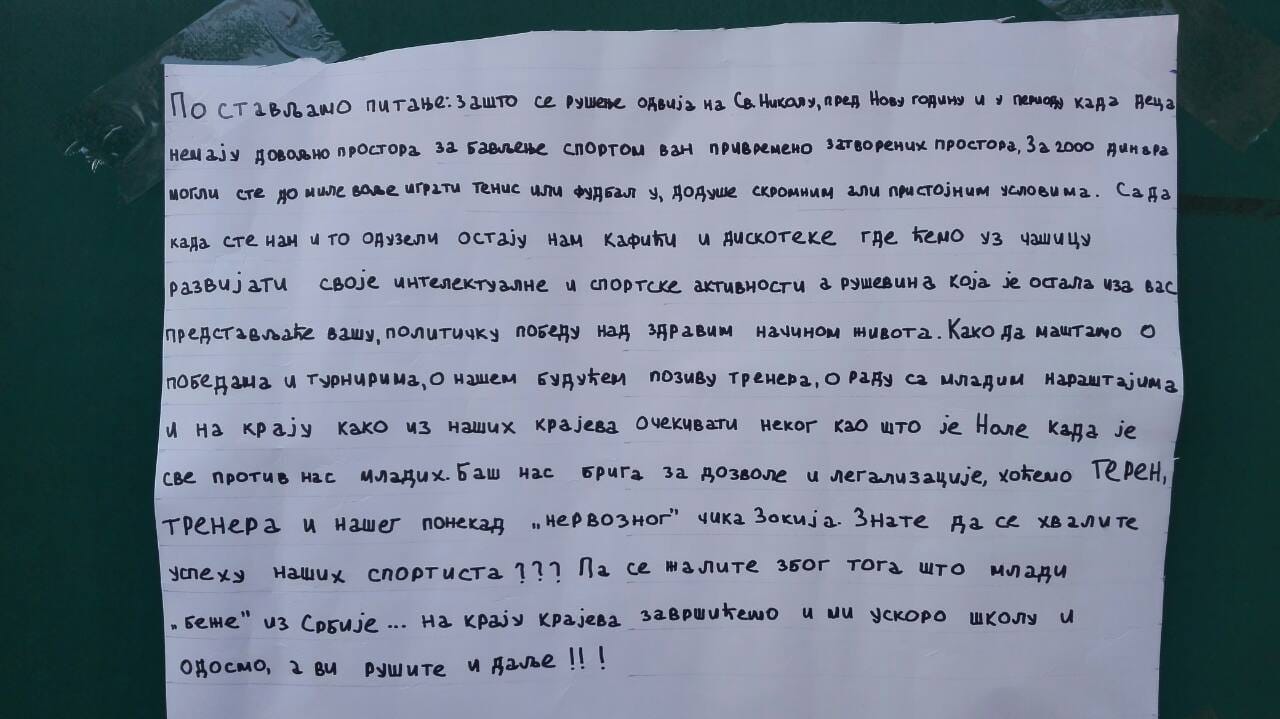 Постављамо питање: зашто се рушење одвија на Св. Николу, пред Нову годину и у периоду када деца
немају довољно простора за бављење спортом ван привремено затворених простора. За 2000 динара
могли сте до миле воље играти тенис или фудбал у, додуше скромним али пристојним условима. Сада
када сте нам и то одузели остају нам кафићи и дискотеке где ћемо уз чашицу
развијати своје интелектуалне и спортске активности а рушевина која је остала иза вас
представљаће вашу, политичку победу над здравим начином живота. Како да маштамо о
победама и турнирима, о нашем будућем позиву тренера, о раду са младим нараштајима
и на крају како из наших крајева очекивати неког као што је Ноле када је
све против нас младих. Баш нас брига за дозволе и легализације, хоћемо ТЕРЕН,
ТРЕНЕРА и нашег понекад „нервозног" чика Зокија. Знате да се хвалите
успеху наших спортиста ??? Па се жалите због тога што млади
„беже" из Србије ... на крају крајева завршићемо и ми ускоро школу и
одосмо, а ви рушите и даље !!!